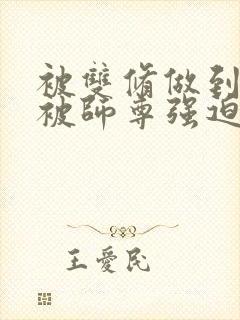 被雙脩做到
被師尊强迫
王愛民